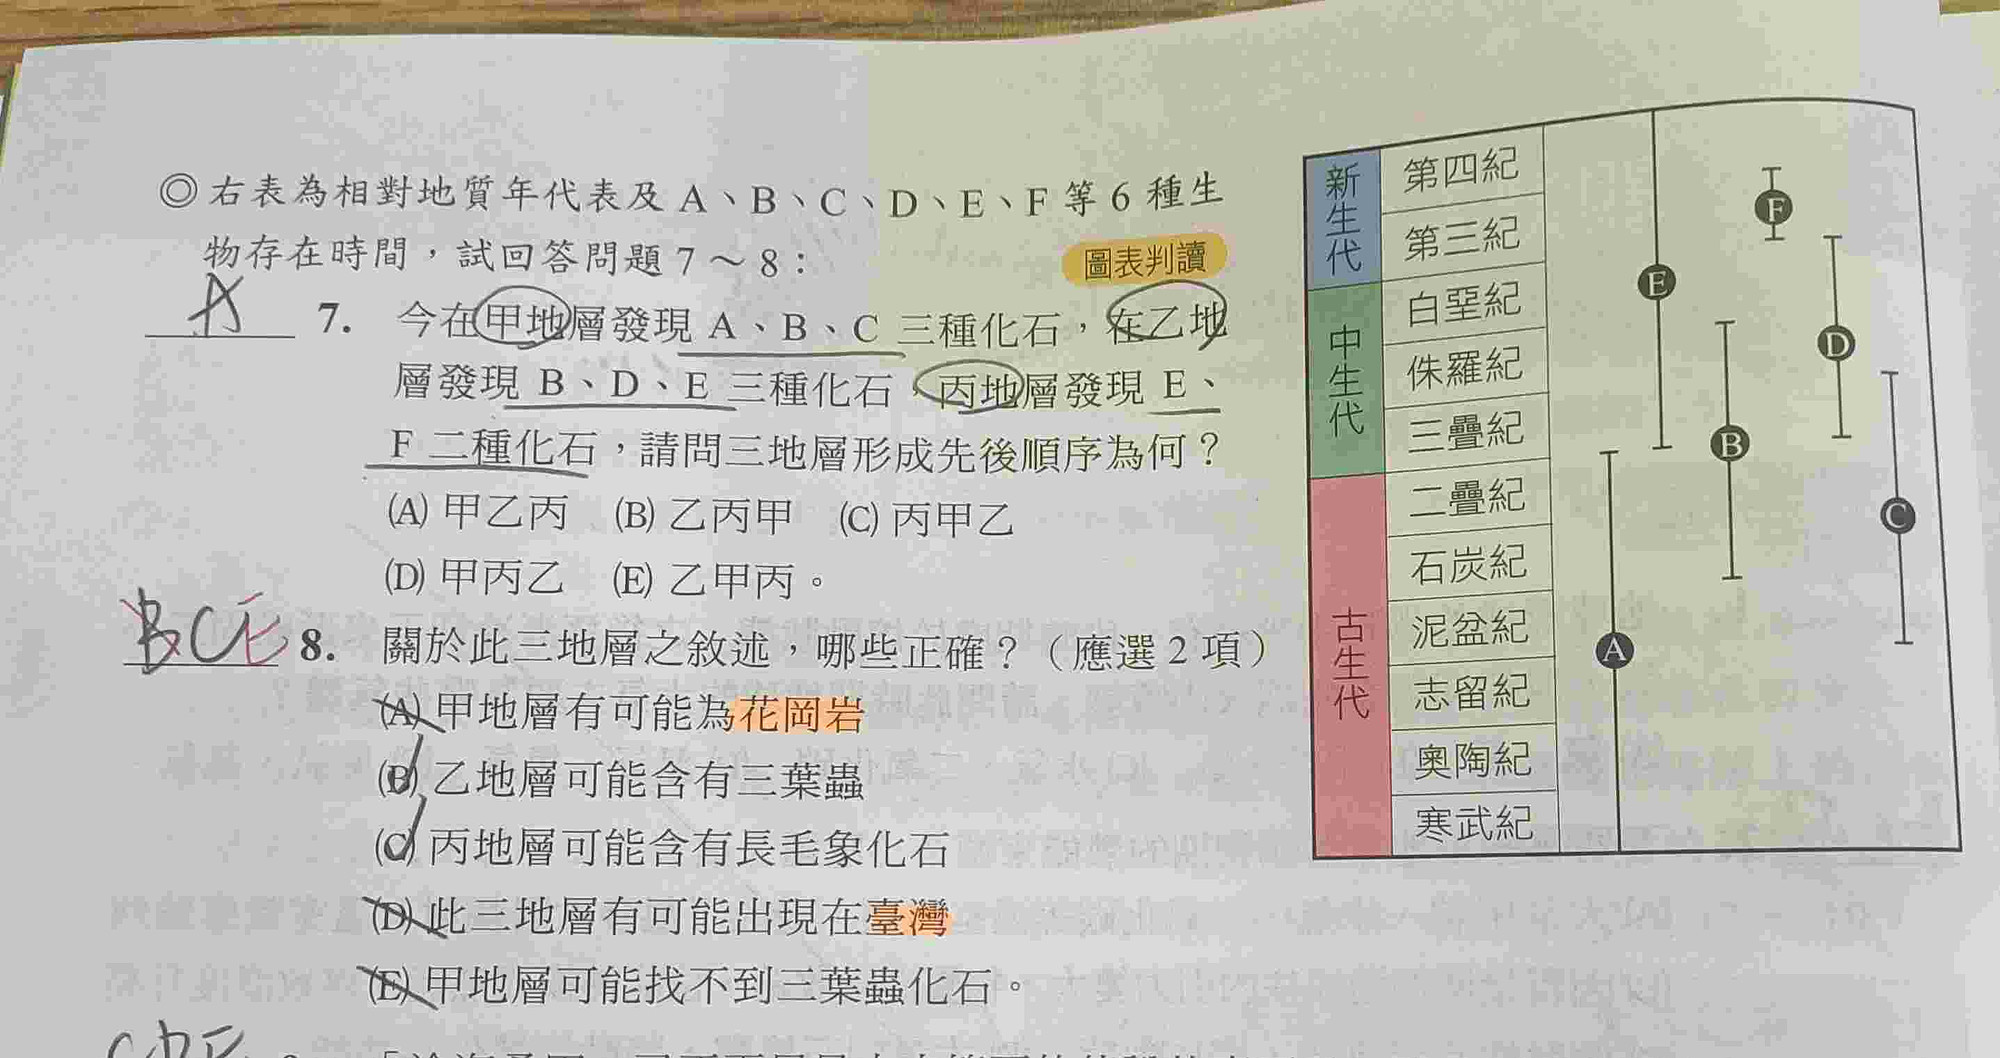 ◎右表為相對地質年代表及 A、B、C、D、E、F 等 6 種生
物存在時間，試回答問題 7～8：
圖表判讀
A
7. 今在甲地層發現 A、B、C 三種化石，在乙地
層發現 B、D、E 三種化石，丙地層發現 E、
F 二種化石，請問三地層形成先後順序為何？
(A) 甲乙丙 (B) 乙丙甲 (C) 丙甲乙
(D) 甲丙乙 (E) 乙甲丙。
BCE
8. 關於此三地層之敘述，哪些正確？（應選 2 項）
(A) 甲地層有可能為花岡岩
(B) 乙地層可能含有三葉蟲
(C) 丙地層可能含有長毛象化石
(D) 此三地層有可能出現在臺灣
(E) 甲地層可能找不到三葉蟲化石。
新生代
第四紀
第三紀
中生代
白堊紀
侏羅紀
三疊紀
古生代
二疊紀
石炭紀
泥盆紀
志留紀
奧陶紀
寒武紀
F
E
D
B
C
A